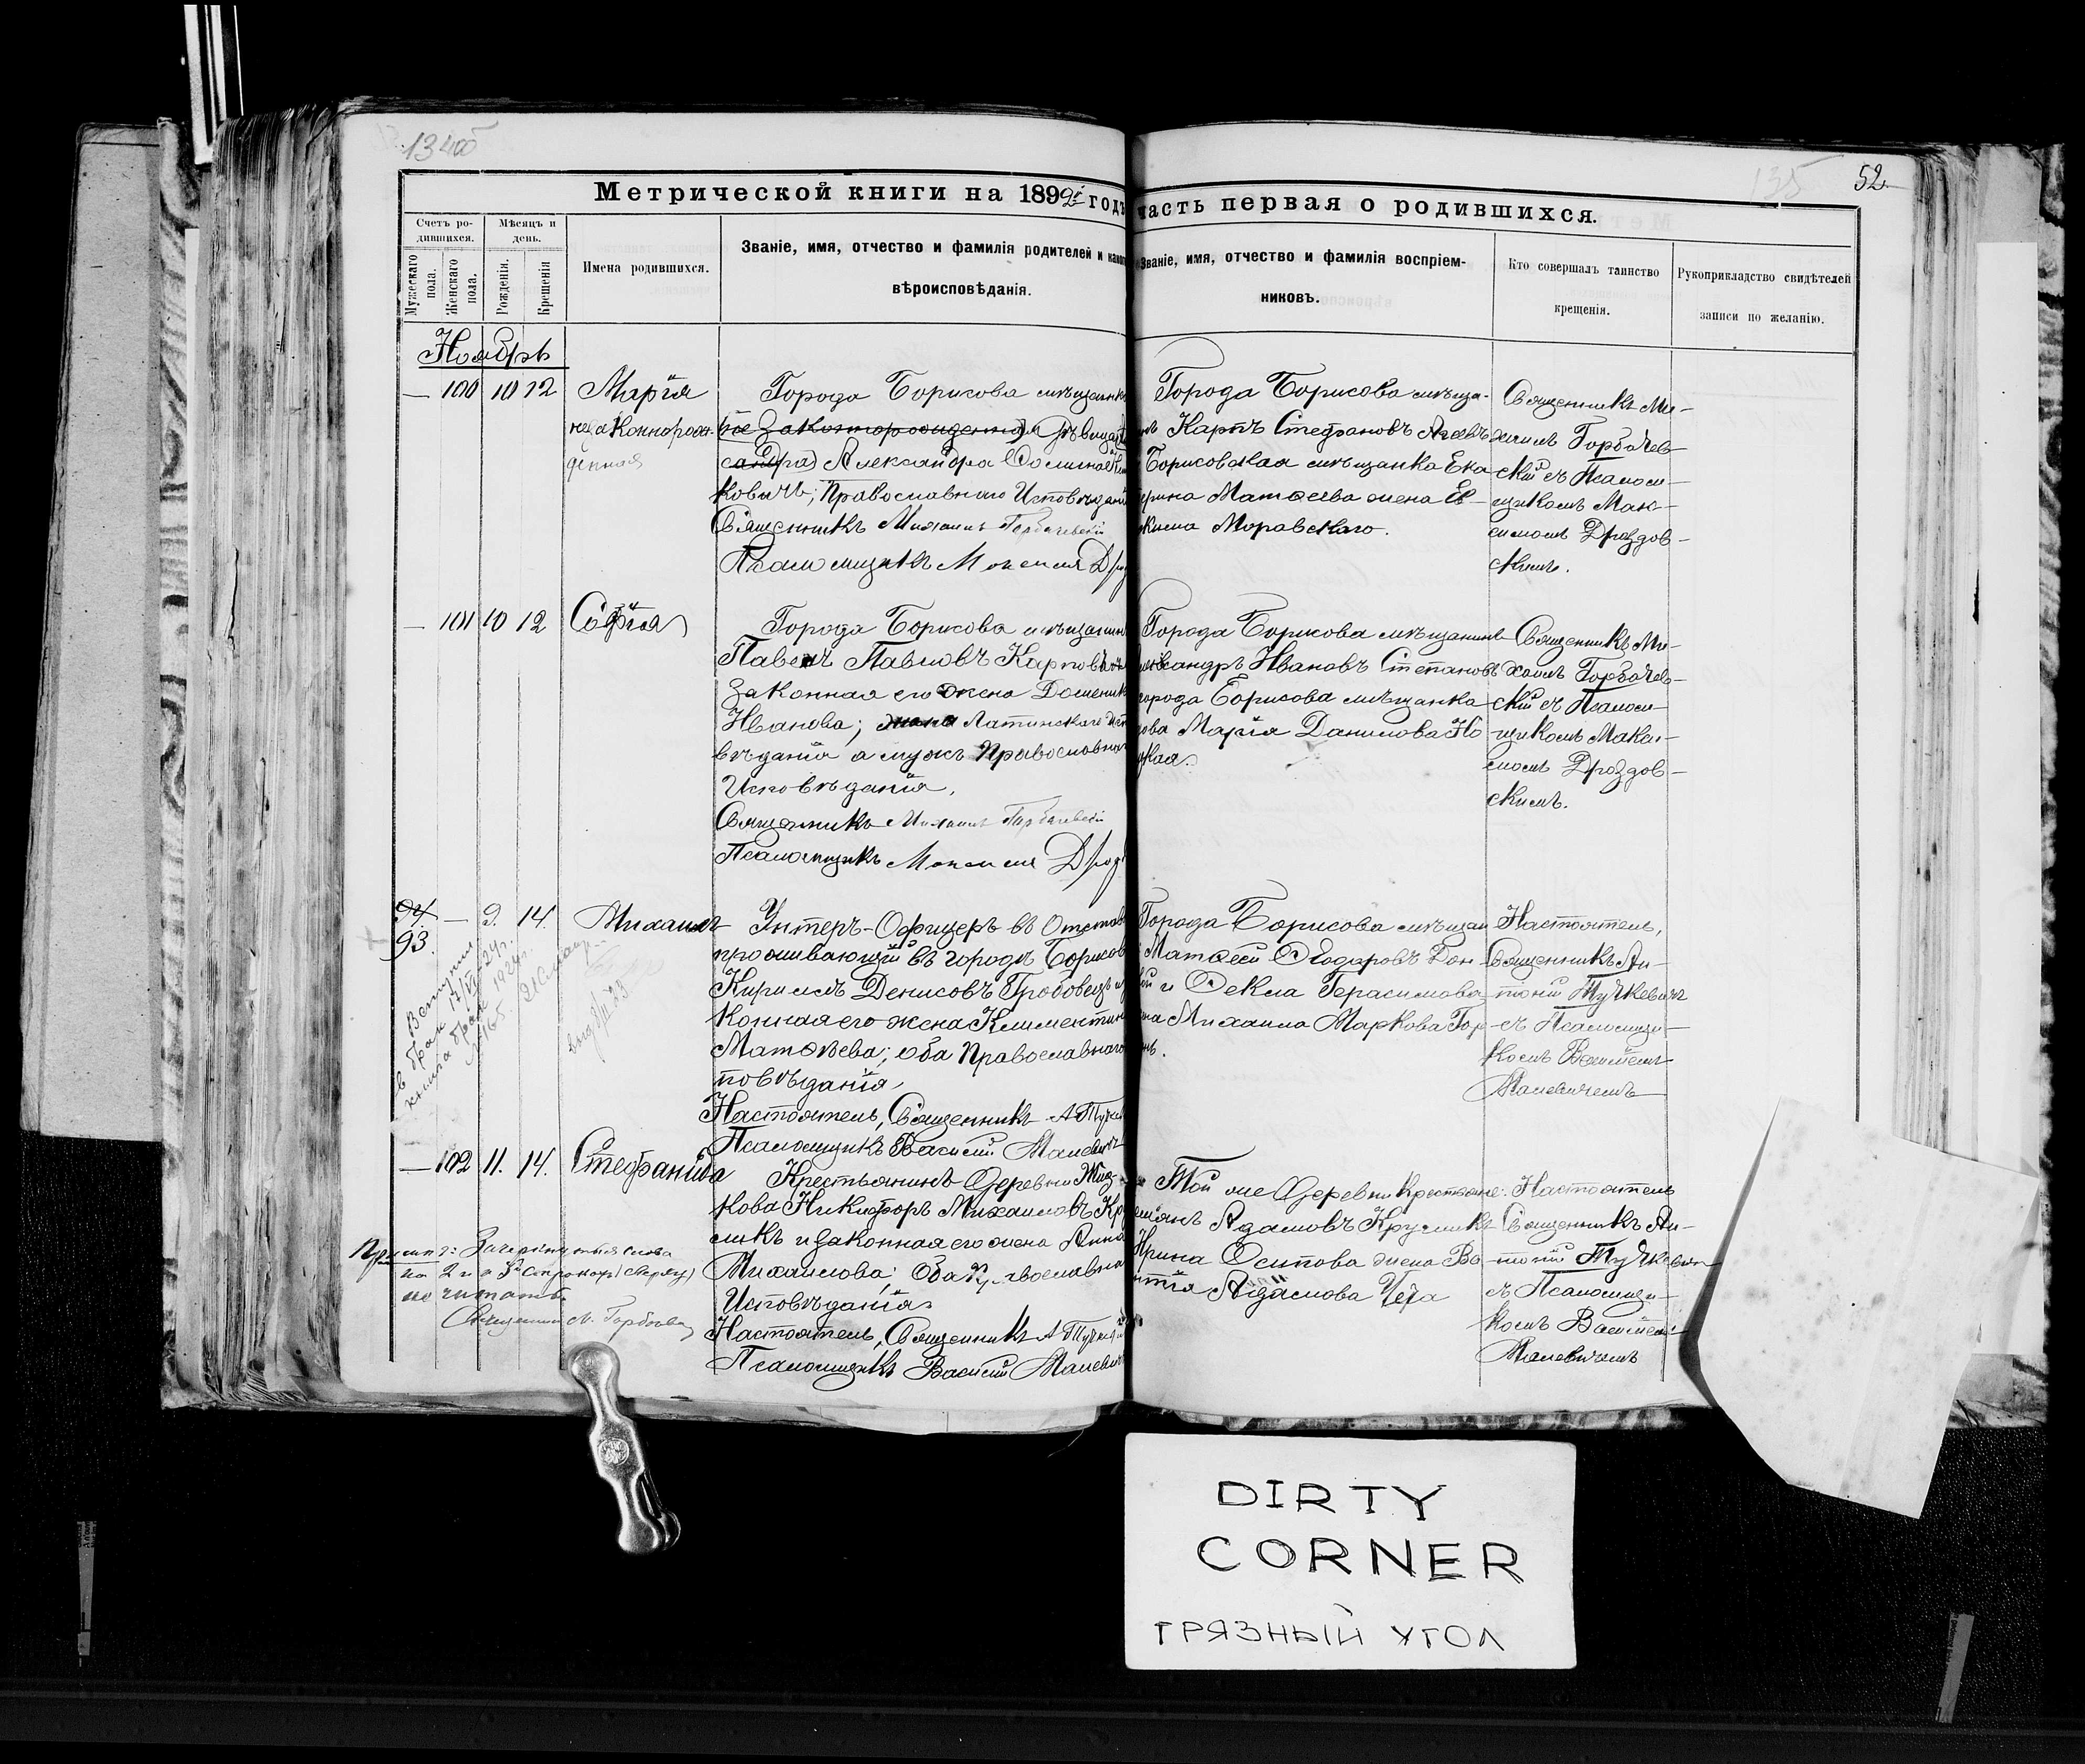 134об
135
52.
Метрической книги на 1892й годъ
часть первая о родившихся.
Счетъ ро-
дившихся.
Мѣсяцъ и
день.
Мужескаго
пола.
Женскаго
пола.
Рожденія.
Крещенія
Имена родившихся.
Званіе, имя, отчество и фамилія родителей и
вѣроисповѣданія.
Званіе, имя, отчество и фамилія воспріем-
никовъ.
Кто совершалъ таинство
крещенія.
Рукоприкладство свидѣтелей
записи по желанію.
Ноябрь
— 100 10 12 Марія
незаконнорож-
денная
Города Борисова мѣщанк
незаконнорожденная дѣвица
Александра
ковичъ; Православнаго Исповѣдан
Священникъ Михаилъ Горбачевскій
Псаломщикъ Максимъ Дроз
Города Борисова мѣща-
нъ Карпъ Стефановъ Агеевъ
Борисовская мѣщанка Ека
ерина Матѳеева жена Ев-
кима Моравскаго.
Священникъ Ми-
хаилъ Горбачев-
скій съ Псалом-
щикомъ Мак-
симомъ Дроздов-
скимъ.
— 101 10 12 Софія
Города Борисова мѣщанин
Павелъ Павловъ Карпович
законная его жена Доменик
Иванова; жена Латинскаго Исп
вѣданія а мужъ Православна
Исповѣданія.
Священникъ Михаилъ Горбачевскій
Псаломщикъ Максимъ Дроз
Города Борисова мѣщанинъ
лександръ Ивановъ Степановъ
города Борисова мѣщанка
дова Марія Данилова Но
цкая.
Священникъ Ми-
хаилъ Горбачев-
скій съ Псалом-
щикомъ Макси-
момъ Дроздов-
скимъ.
94. — 9. 14. Михаилъ
93.
Вступил
в брак 17/VI-24г.
книга брак 1924г.
№ 165.
выд 8/II 23
Унтеръ-Офицеръ въ Отстав
проживающій въ городѣ Борисов
Кирилъ Денисовъ Гробовецъ и
конная его жена Климентин
Матѳѣева; оба Православнаго
повѣданія,
Настоятель, Священникъ А Тучке
Псаломщикъ Василій Малевич
Города Борисова мѣщан
Матѳей Ѳеодоровъ Бон-
ій и Ѳекла Герасимова
на Михаила Маркова Гор-
нь.
Настоятель,
Священникъ Ан-
тоній Тучкевичъ
съ Псаломщи-
комъ Василіемъ
Малевичемъ
— 102 11. 14. Стефанида
Крестьянинъ Деревни
кова Никифоръ Михаиловъ Кр
ликъ и законная его жена Анна
Михаилова; Оба Православна
Исповѣданія.
Настоятель, Священникъ А Тучкев
Псаломщикъ Василій Малевич
Той же Деревни Крестьяне:
Адамовъ Круликъ
Ирина Осипова жена Во
нтія Адамова Чеха
Настоятель
Священникъ Ан-
тоній Тучкевич
съ Псаломщи-
комъ Василіем
Малевичемъ
Примѣч: Зачеркнутыя слова
на 2 и 3й строкахъ (сверху)
не читать.
Священникъ М. Горбачев
DIRTY
CORNER
ГРЯЗНЫЙ УГОЛ